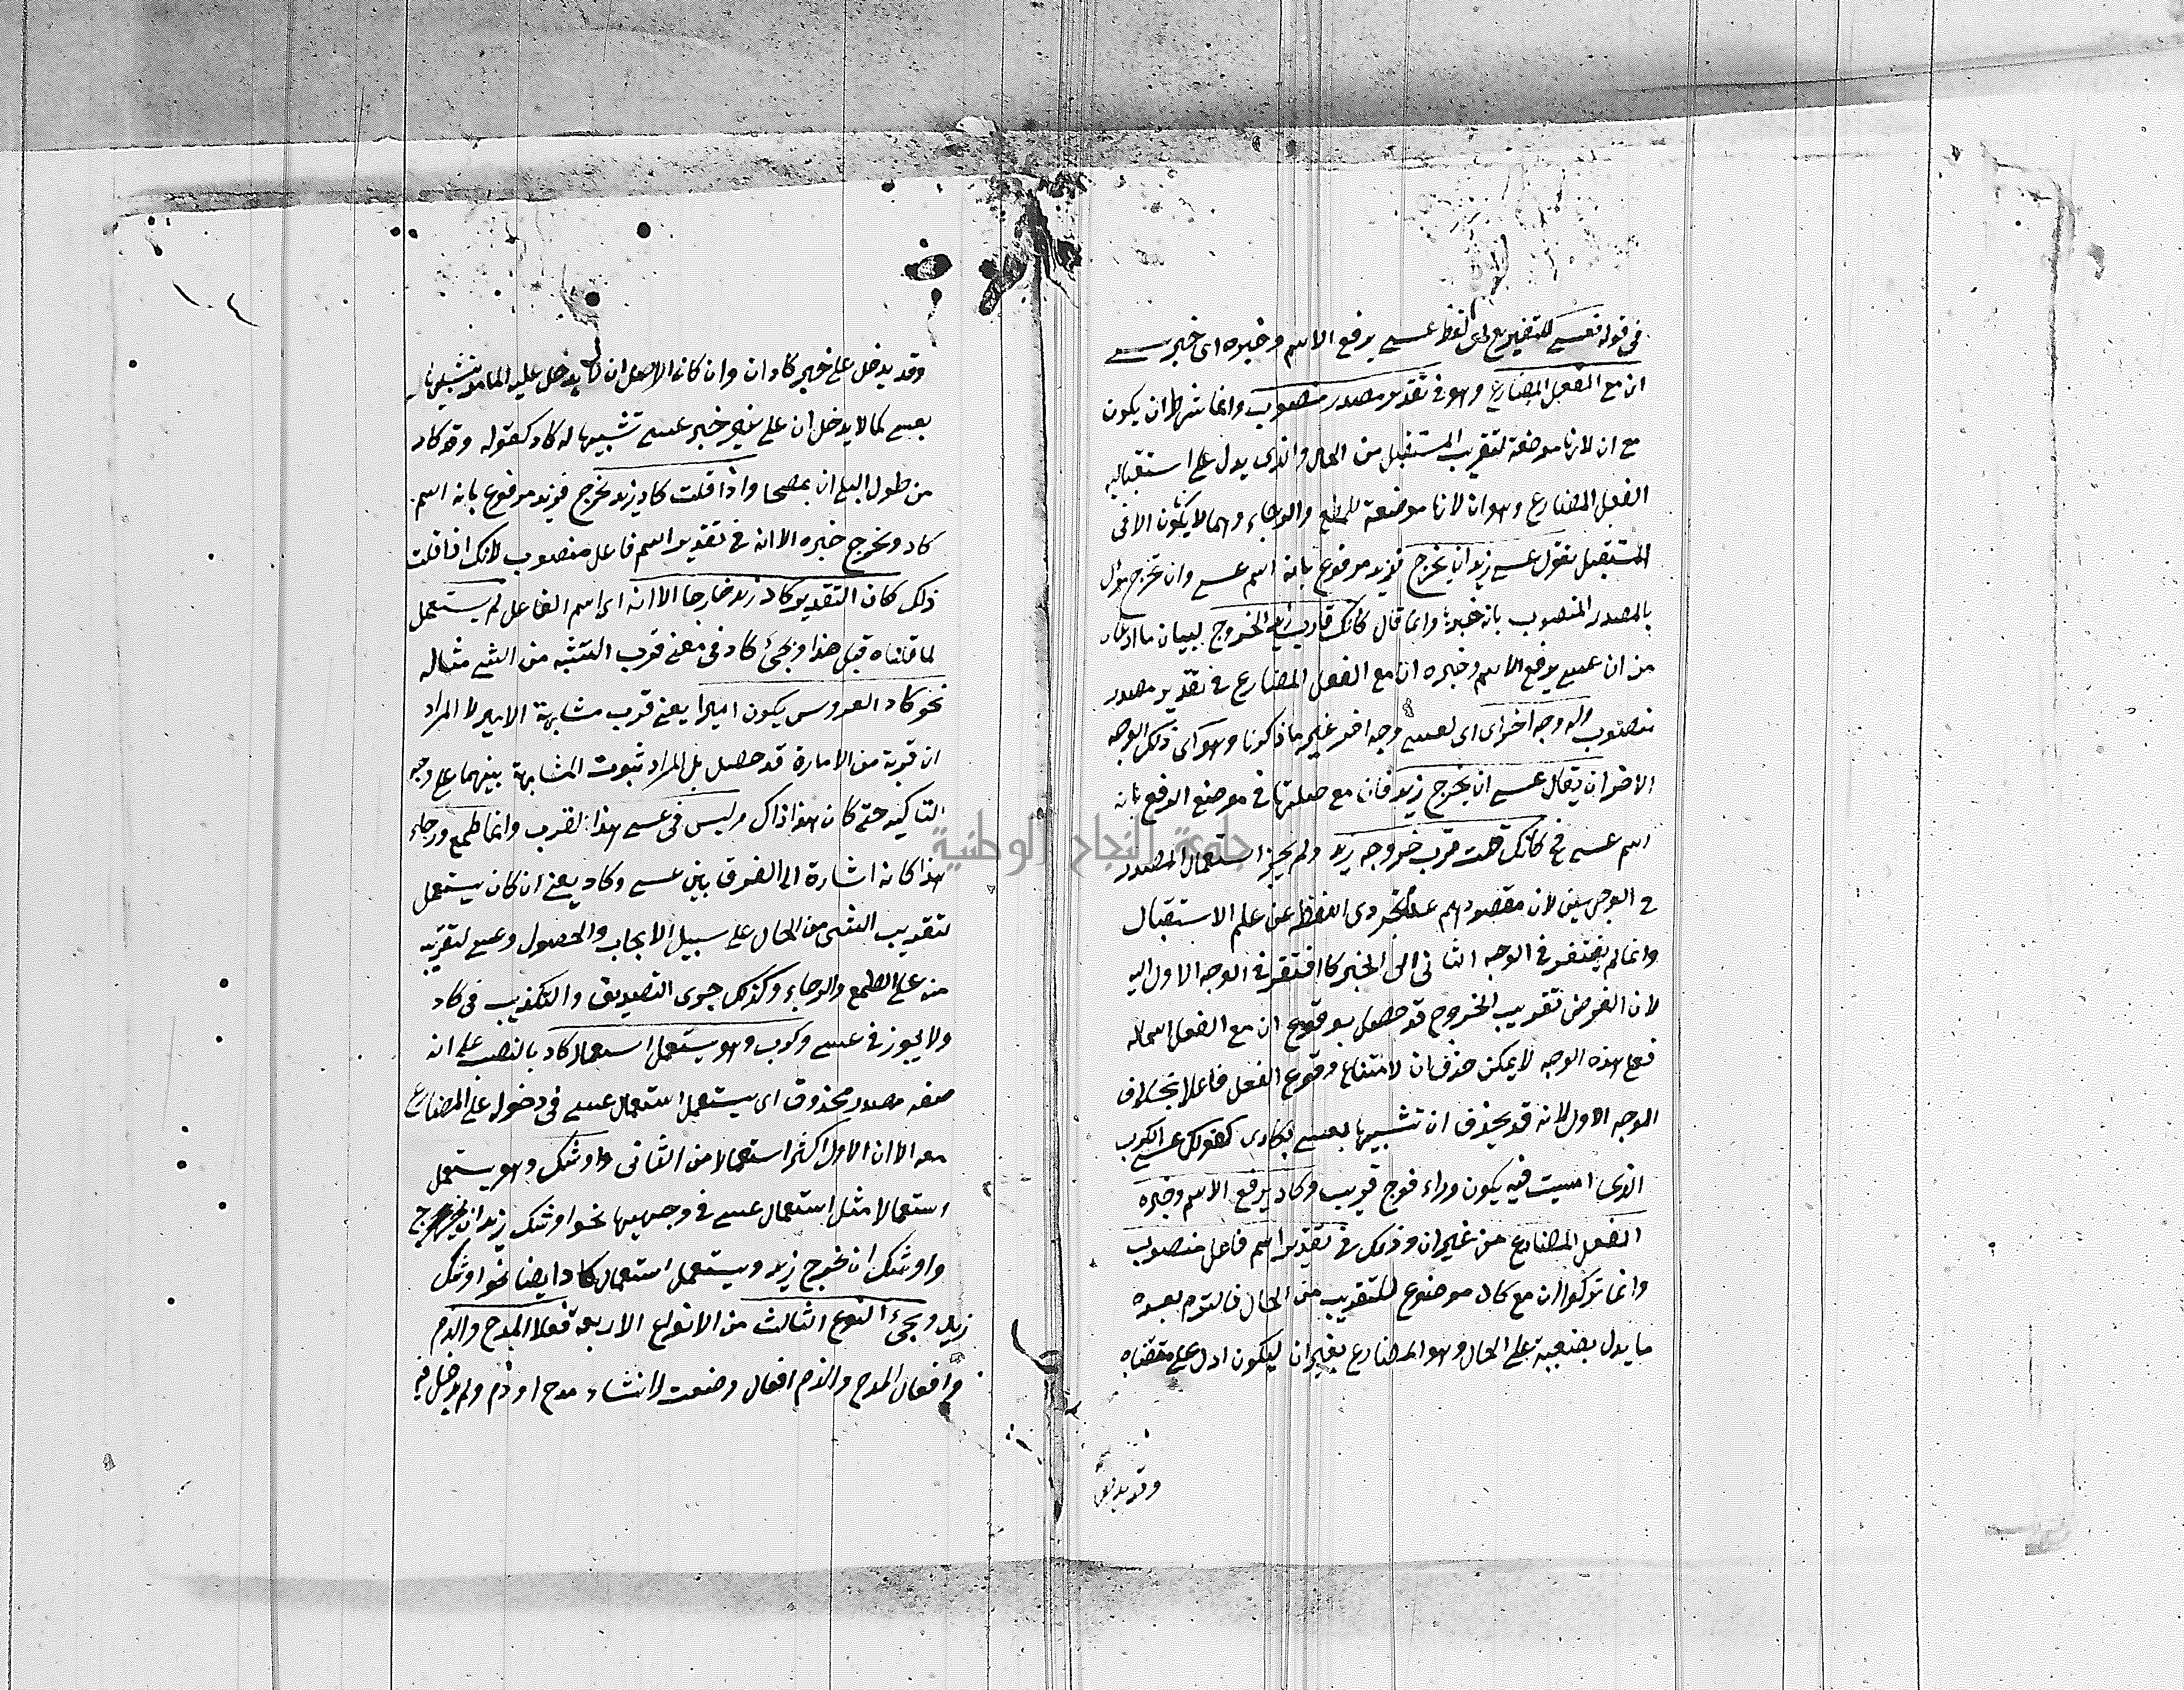 في قوله فعسى للتفريع اى لفظ عسى يرفع الاسم وخبره اى خبر عسى
ان مع الفعل المضارع وهو فى تقدير مصدر منصوب وانما شرط ان يكون
مع ان لانها موضوعة لتقريب المستقبل من الحال والذى يدل على استقباليه
الفعل المضارع وهو ان لانها موضوعة للطمع والرجاء وهما لا يكون الا فى
المستقبل نقول عسى زيد ان يخرج فزيد مرفوع بانه اسم عسى وان يخرج مؤل
بالمصدر المنصوب بانه خبره وانما قال كانك قارب زيد الخروج لبيان ما ادعاه
من ان عسى يرفع الاسم وخبره ان مع الفعل المضارع فى تقدير مصدر
منصوب وله وجه اخر اى لعسى وجه اخر غير ما ذكرنا وهو اى ذلك الوجه
الاخر ان يقال عسى ان يخرج زيد فان مع صلتها فى موضع الرفع بانه
اسم عسى كانك قلت قرب خروجه زيد ولم يجز استعمال المصدر
الوجهين لان مقصودهم اللفظ عن علم الاستقبال
وانما لم يفتقر فى الوجه الثانى الى الخبر كما افتقر فى الوجه الاول اليه
لان الغرض تقريب الخروج قد حصل بوقوع ان مع الفعل اسما له
فعلى هذه الوجه لا يمكن حذف ان لامتناع وقوع الفعل فاعلا بخلاف
الوجه الاول لانه قد يحذف ان تشبيها لعسى بكاد كقولك عسى الكرب
الذى امسيت فيه يكون وراءه فرج قريب وكاد يرفع الاسم وخبره
الفعل المضارع من غير ان وذلك فى تقدير اسم فاعل منصوب
وانما تركوا ان مع كاد موضوع للتقريب من الحال فالتزم بعده
ما يدل بصيغته على الحال وهو المضارع بغير ان ليكون ادل على مقتضاه
وقد يدخل
وقد يدخل على خبر كاد ان وان كان الاصل ان لا يدخل عليه لما مر تشبيها
بعسى كما لا يدخل ان على خبر عسى تشبيها له كاد كقوله وقد كاد
من طول البلى ان يمصحا واذا قلت كاد زيد يخرج فزيد مرفوع بانه اسم
كاد ويخرج خبره الا انه فى تقدير اسم فاعل منصوب لانك اذا قلت
ذلك كان التقدير كاد زيد خارجا الا انه اى اسم الفاعل لم يستعمل
لما قلناه قبل هذا ويجئ كاد فى معنى قرب الشبه من الشئ مثاله
نحو كاد العروس يكون اميرا يعنى قرب مشابهة الامير لا المراد
ان قربه من الامارة قد حصل بل المراد ثبوت المشابهة بينهما على وجه
التاكيد حتى كان هذا ذاك وليس فى عسى هذا القرب وانما طمع ورجاء
هذا كانه اشارة الى الفرق بين عسى وكاد يعنى ان كان يستعمل
لتقريب الشئ من الحال على سبيل الايجاب والحصول وعسى لتقريبه
منه على الطمع والرجاء وكذلك جرى التصديق والتكذيب فى كاد
ولا يجوز فى عسى وكرب وهو يستعمل استعمال كاد بالنصب على انه
صفه مصدر محذوف اى يستعمل استعمال عسى فى دخوله على المضارع
معه الا ان الاول اكثر استعمالا من الثانى واوشك وهو يستعمل
استعمالا مثل استعمال عسى فى وجهيها نحو اوشك زيد ان يخرج
واوشك ان يخرج زيد ويستعمل استعمال كاد ايضا نحو اوشك
زيد ويجئ النوع الثالث من الانواع الاربعة فعلا المدح والذم
وافعال المدح والذم افعال وضعت لانشاء مدح او ذم ولم يدخل فيه
جامعة النجاح الوطنية